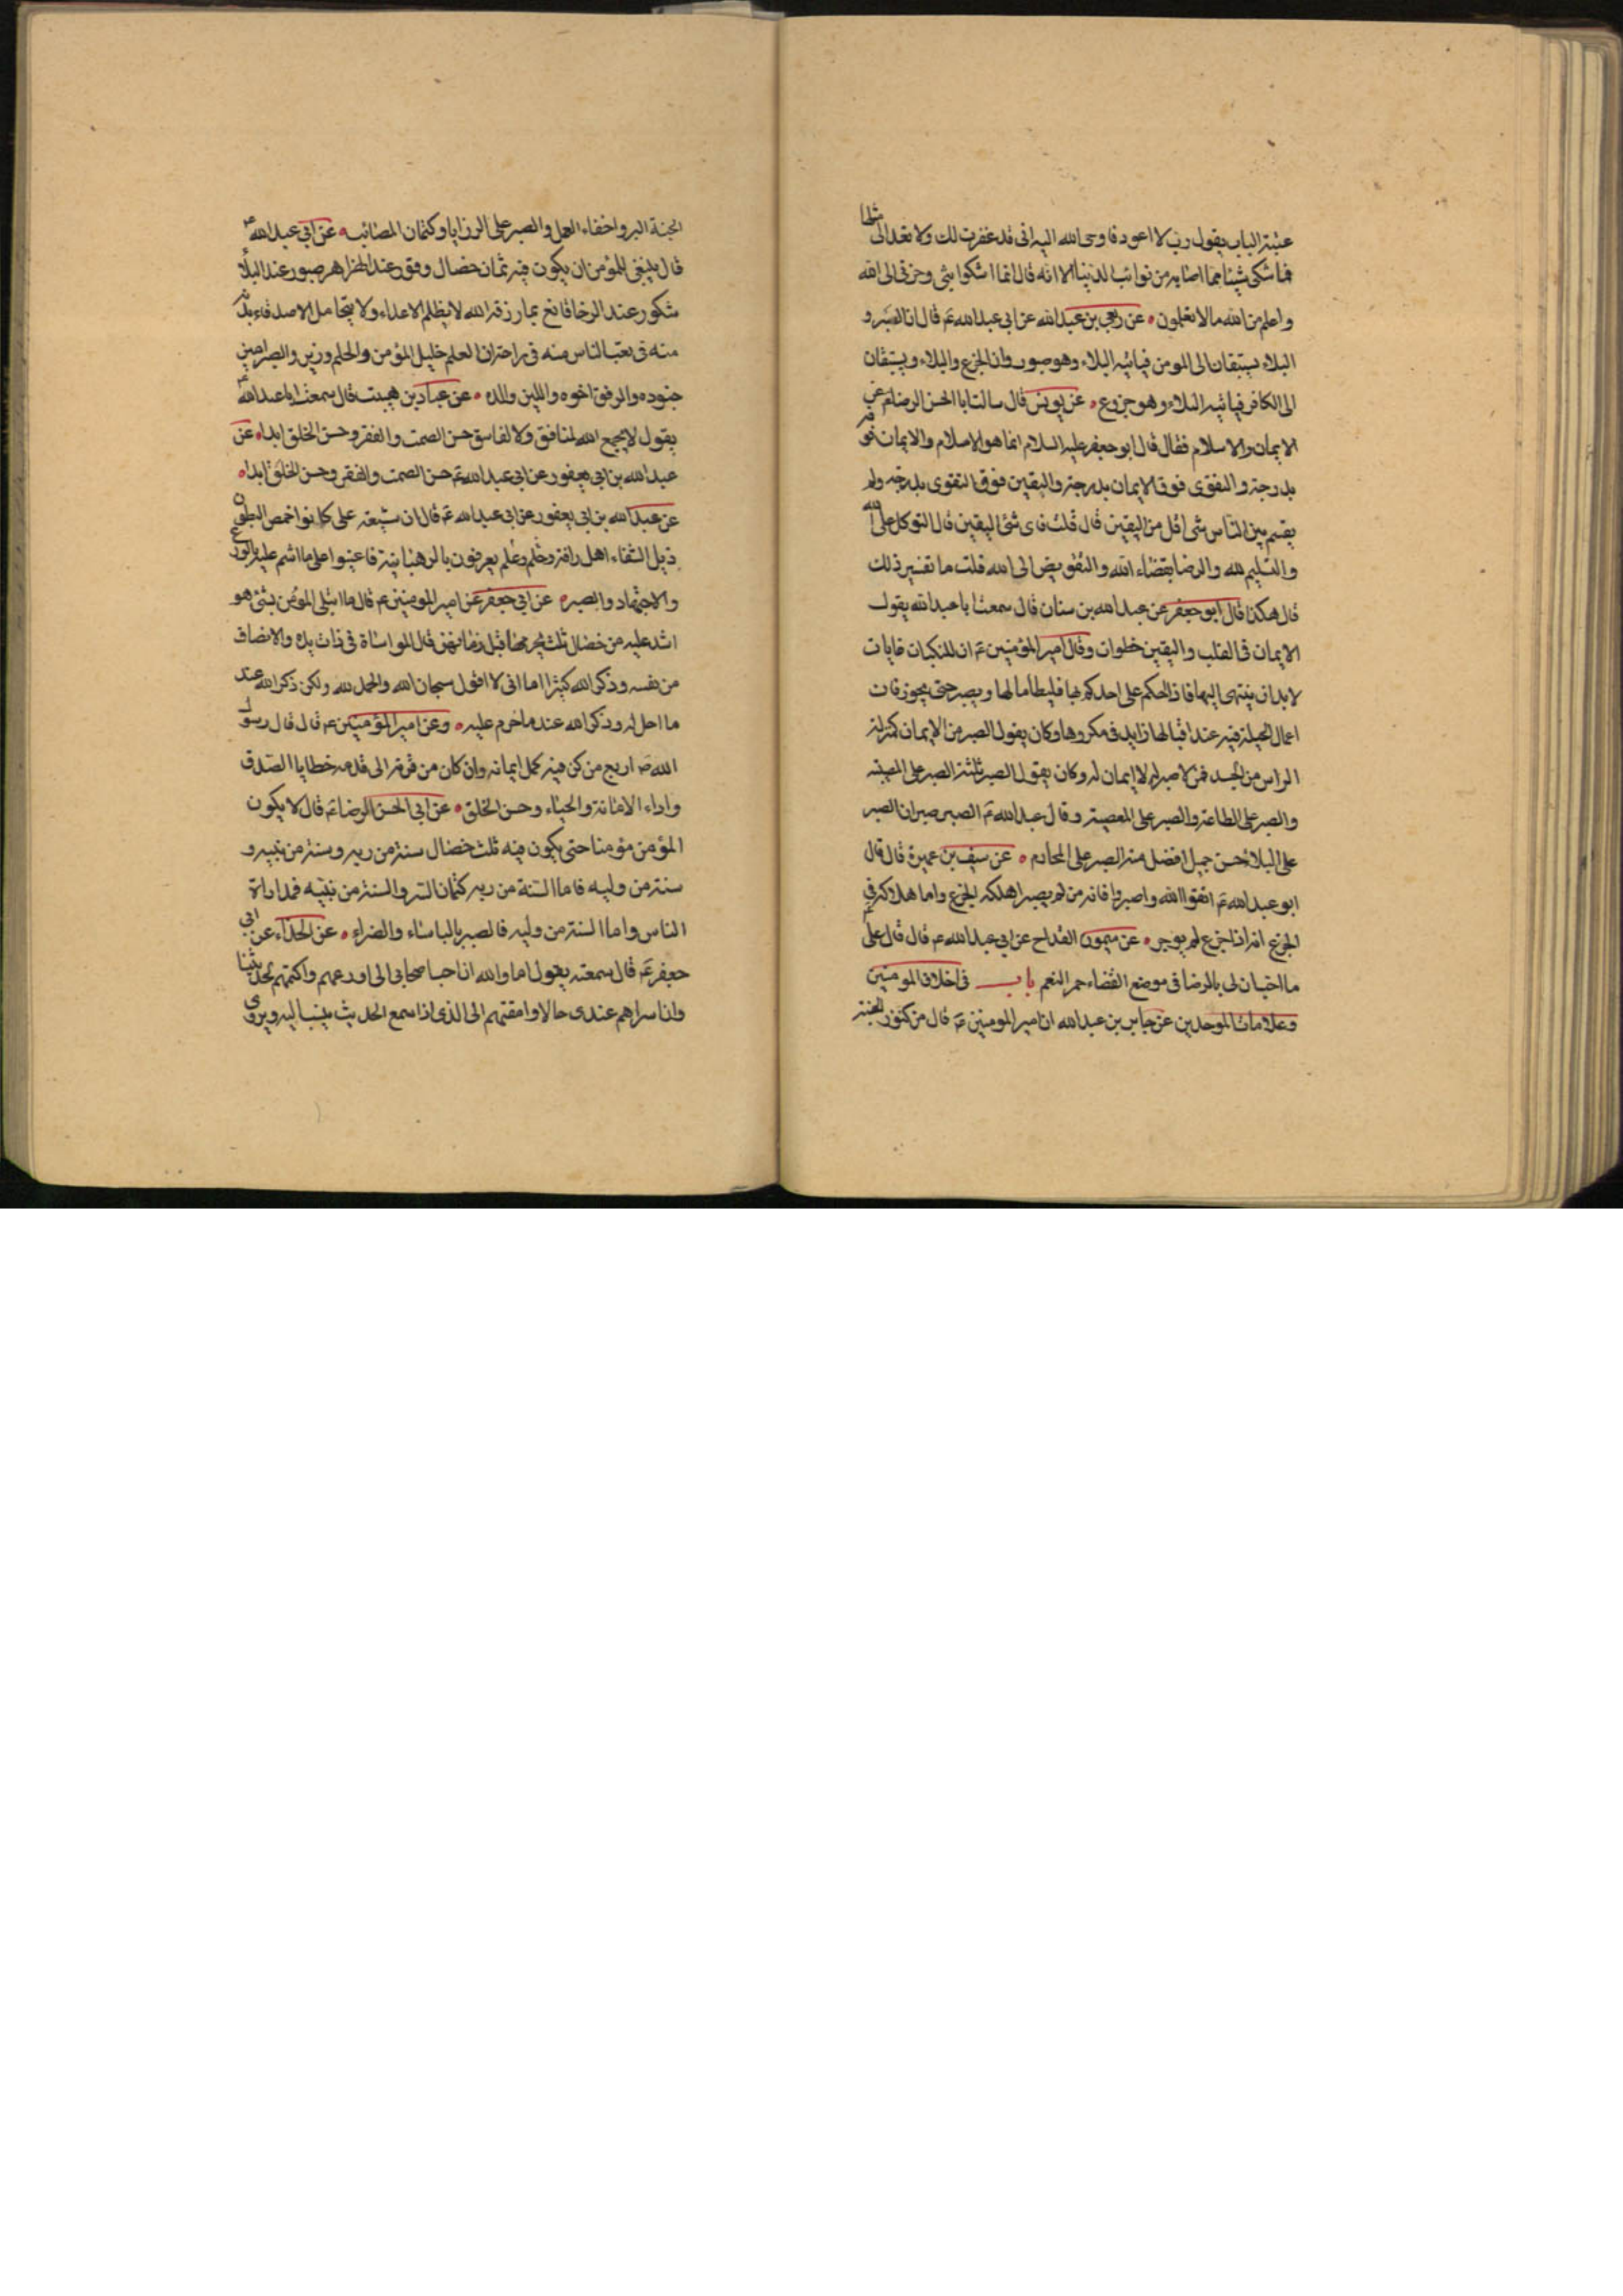 عتبة الباب يقول رب لا اعود فاوحى الله اليه انى قد غفرت لك ولا تعد الى مثلها
فما شكى شيئا مما اصابه من نوائب الدنيا الا انه قال انما اشكوا بثى وحزنى الى الله
واعلم من الله ما لا تعلمون عن ربعى بن عبد الله عن ابى عبد الله ع قال ان الصبر و
البلاء يستبقان الى المومن فياتيه البلاء وهو صبور وان الجزع والبلاء ويستبقان
الى الكافر فياتيه البلاء وهو جزوع عن يونس قال سالت ابا الحسن الرضا ع عن
الايمان والاسلام فقال قال ابو جعفر عليه السلام انما هو الاسلام والايمان فوقه
بدرجة والتقوى فوق الايمان بدرجة واليقين فوق التقوى بدرجة ولم
يقسم بين الناس شى اقل من اليقين قال قلت فاى شئ اليقين قال التوكل على الله
والتسليم لله والرضا بقضاء الله والتفويض الى الله قلت ما تفسير ذلك
قال هكذا قال ابو جعفر عن عبد الله بن سنان قال سمعت ابا عبد الله يقول
الايمان فى القلب واليقين خطوات وقال امير المؤمنين ع ان للنكبات غايات
لا بد ان ينتهى اليها فاذا حكم على احدكم بها فليطأطأ لها ويصبر حتى يجوز فان
اعمال الحيلة فيه عند اقبالها زايد فى مكروهها وكان يقول الصبر من الايمان كمنزلة
الراس من الجسد فمن لا صبر له لا ايمان له وكان يقول الصبر ثلثة الصبر على المصيبة
والصبر على الطاعة والصبر على المعصية وقال عبد الله ع الصبر صبران الصبر
على البلاء حسن جميل افضل منه الصبر على المحارم عن سيف بن عميرة قال قال
ابو عبد الله ع اتقوا الله واصبروا فانه من لم يصبر اهلكه الجزع واما هلاكه فى
الجزع انه اذا جزع لم يوجر عن ميمون القداح عن ابى عبد الله ع قال قال على
ما احب ان لى بالرضا فى موضع القضاء حمر النعم باب فى اخلاق المومنين
وعلامات الموحدين عن جابر بن عبد الله ان امير المومنين ع قال من كنوز الجنة
الجنة البر واخفاء العمل والصبر على الرزايا وكتمان المصائب عن ابى عبد الله ع
قال ينبغى للمؤمن ان يكون فيه ثمان خصال وقور عند الهزاهز صبور عند البلاء
شكور عند الرخا قانع بما رزقه الله لا يظلم الاعداء ولا يتحامل الاصدقاء بدنه
منه فى تعب الناس منه فى راحة ان العلم خليل المؤمن والحلم وزيره والصبر امير
جنوده والرفق اخوه واللين والده عن عباد بن صهيب قال سمعت ابا عبد الله ع
يقول لا يجمع الله لمنافق ولا لفاسق حسن الصمت والفقر وحسن الخلق ابدا عن
عبد الله بن ابى يعفور عن ابى عبد الله ع حسن الصمت والفقر وحسن الخلق ابدا
عن عبد الله بن ابى يعفور عن ابى عبد الله ع قال ان شيعة على كانوا خمص البطون
ذبل الشفاء اهل رافة وحلم وعلم يعرفون بالرهبانية فاعينوا على ما انتم عليه بالورع
والاجتهاد والصبر عن ابى جعفر عن امير المومنين ع قال ما ابتلى المؤمن بشئ هو
اشد عليه من خصال ثلث يحرمها قيل وما هن قال المواساة فى ذات يده والانصاف
من نفسه وذكر الله كثيرا اما انى لا اقول سبحان الله والحمد لله ولكن ذكر الله عند
ما احل له وذكر الله عند ما حرم عليه وعن امير المؤمنين ع قال قال رسول
الله ص اربع من كن فيه كمل ايمانه وان كان من قرنه الى قدمه خطايا الصدق
واداء الامانة والحياء وحسن الخلق عن ابى الحسن الرضا ع قال لا يكون
المؤمن مؤمنا حتى يكون فيه ثلث خصال سنة من ربه وسنة من نبيه و
سنة من وليه فاما السنة من ربه كتمان السر والسنة من نبيه فمداراة
الناس واما السنة من وليه فالصبر بالباساء والضراء عن الحذاء عن ابى
جعفر ع قال سمعته يقول اما والله ان احب اصحابى الى اورعهم واكتمهم لحديثنا
وان اسراهم عندى حالا وامقتهم الى الذى اذا سمع الحديث ينسب اليه ويروى